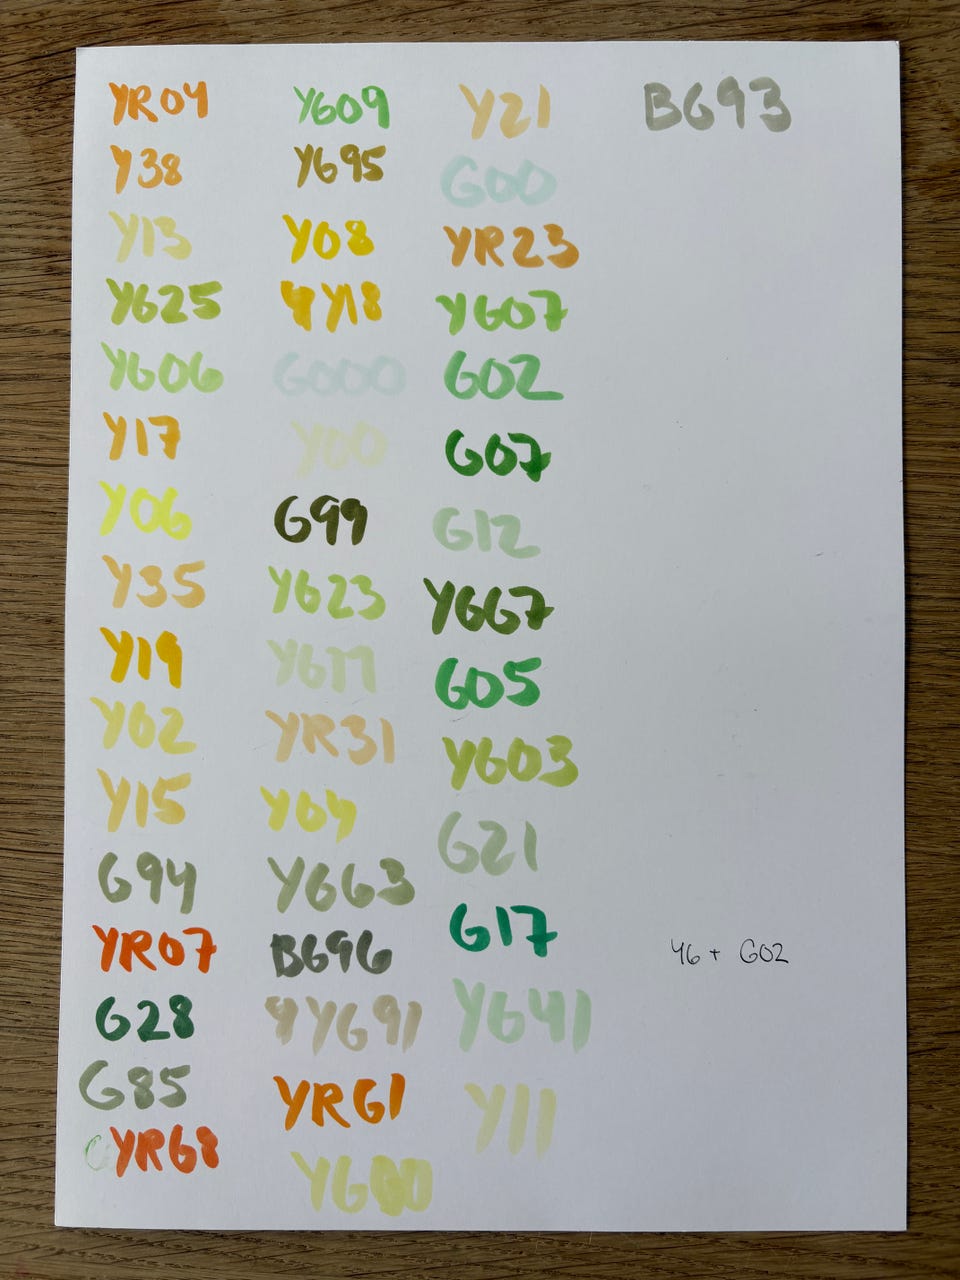 YR04
Y38
Y13
YG25
YG06
Y17
Y06
Y35
Y19
Y02
Y15
G94
YR07
G28
G85
YR68
YG09
YG95
Y08
Y18
G000
Y00
G99
YG23
YG11
YR31
Y04
YG63
BG96
YG91
YR61
YG00
Y21
G00
YR23
YG07
G02
G07
G12
YG67
G05
YG03
G21
G17
YG41
Y11
BG93
Y6 + G02